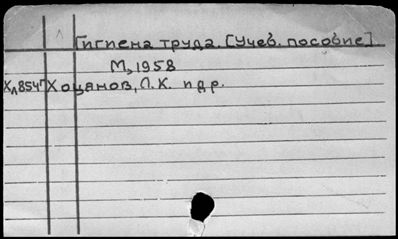 Гигиена труда. [Учеб. пособие]
М, 1958
Хл854ᴨ Хоцянов, Л.К. и др.